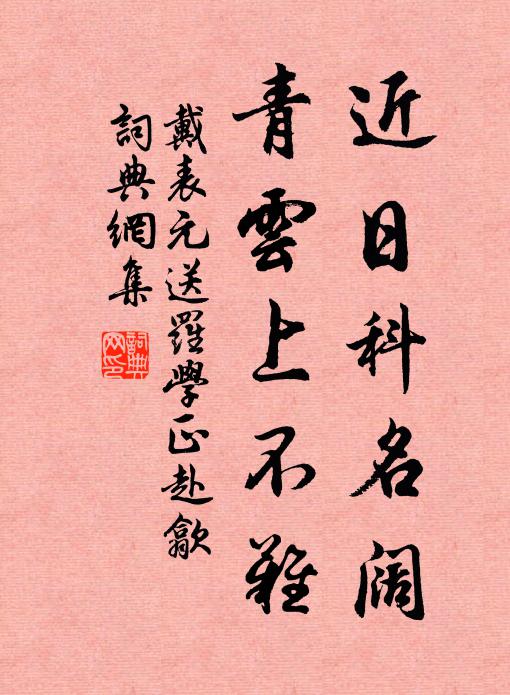 近日科名阔
青雲上不難
戴表元送羅學正赴歙
詞典網集
詞典网印